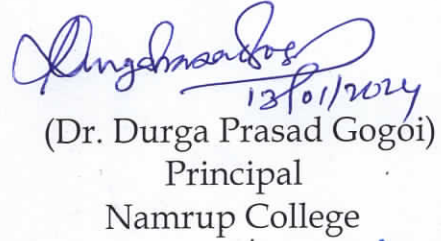 13/01/2024
(Dr. Durga Prasad Gogoi)
Principal
Namrup College